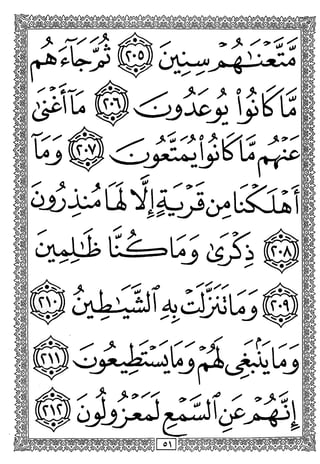 مَّتَّعْنَٰهُمْ سِنِينَ ﴿٢٠٥﴾ ثُمَّ جَآءَهُم
مَّا كَانُوا۟ يُوعَدُونَ ﴿٢٠٦﴾ مَآ أَغْنَىٰ
عَنْهُم مَّا كَانُوا۟ يُمَتَّعُونَ ﴿٢٠٧﴾ وَمَآ
أَهْلَكْنَا مِن قَرْيَةٍ إِلَّا لَهَا مُنذِرُونَ
﴿٢٠٨﴾ ذِكْرَىٰ وَمَا كُنَّا ظَٰلِمِينَ
﴿٢٠٩﴾ وَمَا تَنَزَّلَتْ بِهِ ٱلشَّيَٰطِينُ ﴿٢١٠﴾
وَمَا يَنۢبَغِى لَهُمْ وَمَا يَسْتَطِيعُونَ ﴿٢١١﴾
إِنَّهُمْ عَنِ ٱلسَّمْعِ لَمَعْزُولُونَ ﴿٢١٢﴾
٥١